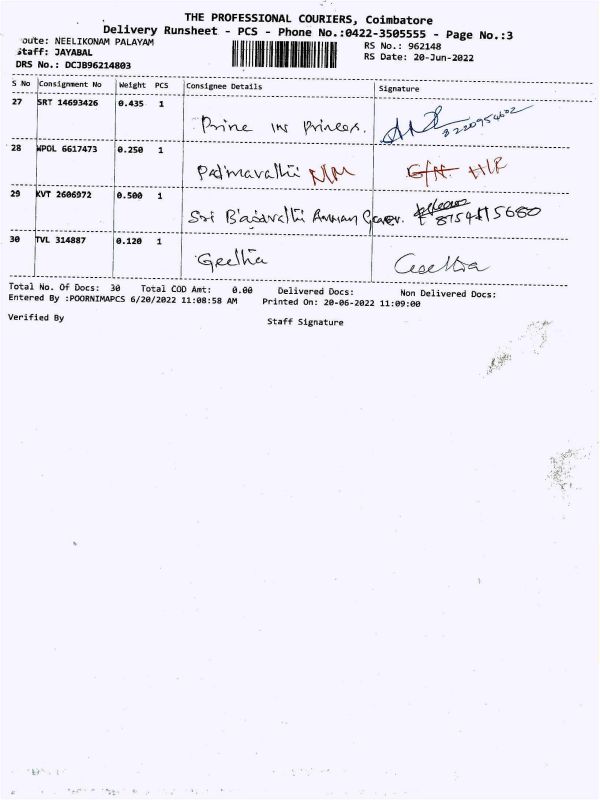 THE PROFESSIONAL COURIERS, Coimbatore
Delivery Runsheet - PCS - Phone No.:0422-3505555 - Page No.:3
oute: NEELIKONAM PALAYAM
Staff: JAYABAL
DRS No.: DCJB96214803
RS No.: 962148
RS Date: 20-Jun-2022
S No Consignment No Weight PCS Consignee Details Signature
27 SRT 14693426 0.435 1
Prine in Princes.
28 WPOL 6617473 0.250 1
Padmavathi NM
29 KVT 2606972 0.500 1
Sri
30 TVL 314887 0.120 1
Geetha Geetha
Total No. Of Docs: 30 Total COD Amt: 0.00 Delivered Docs: Non Delivered Docs:
Entered By :POORNIMAPCS 6/20/2022 11:08:58 AM Printed On: 20-06-2022 11:09:00
Verified By Staff Signature